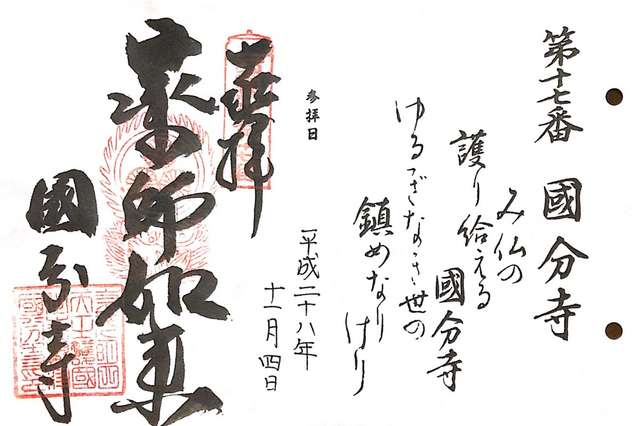 第十七番 國分寺
み仏の
護り給える
國分寺
ゆるぎなき世の
鎮めなり
けり
参拝日
平成二十八年
十一月四日
奉拝
薬師如来
國分寺